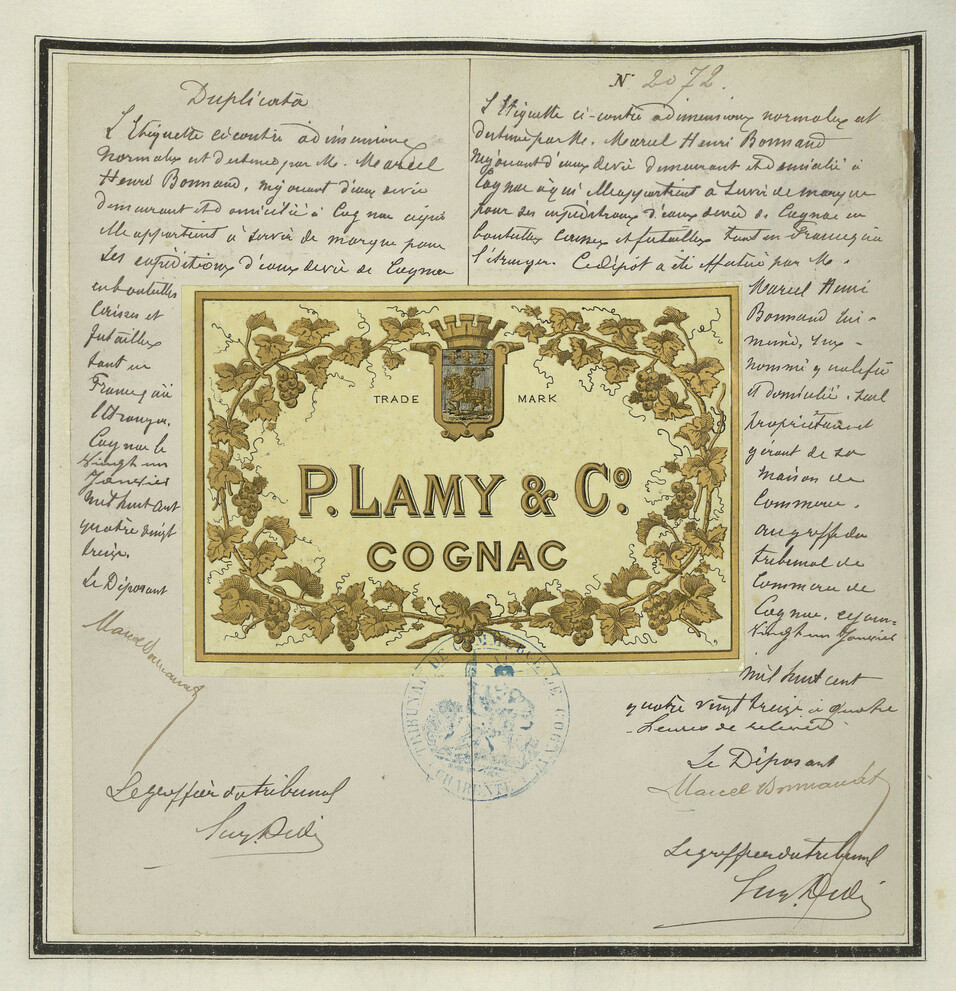 Duplicata
L'Etiquette ci-contre à dimensions
normales est destinée par M. Marcel
Henri Bonnaud, négociant d'eaux de vie
demeurant et domicilié à Cognac à qui
elle appartient à servir de marque pour
ses expéditions d'eaux de vie de Cognac
en bouteilles
Caisses et
futailles
tant en
France qu'à
l'étranger.
Cognac le
Vingt un
Janvier
mil huit cent
quatre vingt
treize.
Le Déposant
Marcel Bonnaud
Le greffier du tribunal
N° 2072.
L'Etiquette ci-contre à dimensions normales est
destinée par M. Marcel Henri Bonnaud
négociant d'eaux de vie demeurant et domicilié à
Cognac à qui elle appartient à servir de marque
pour ses expéditions d'eaux de vie de Cognac en
bouteilles Caisses et futailles tant en France qu'à
l'étranger. Ce dépôt a été effectué par M.
Marcel Henri
Bonnaud lui-
même, sus-
nommé qualifié
et domicilié, seul
propriétaire et
gérant de sa
maison de
Commerce,
au greffe du
tribunal de
Commerce de
Cognac, ce jour
Vingt un Janvier
mil huit cent
quatre vingt treize à quatre
heures de relevée
Le Déposant
Marcel Bonnaud
Le greffier du tribunal
TRADE MARK
P. LAMY & Co.
COGNAC
TRIBUNAL DE COMMERCE DE COGNAC
(CHARENTE)